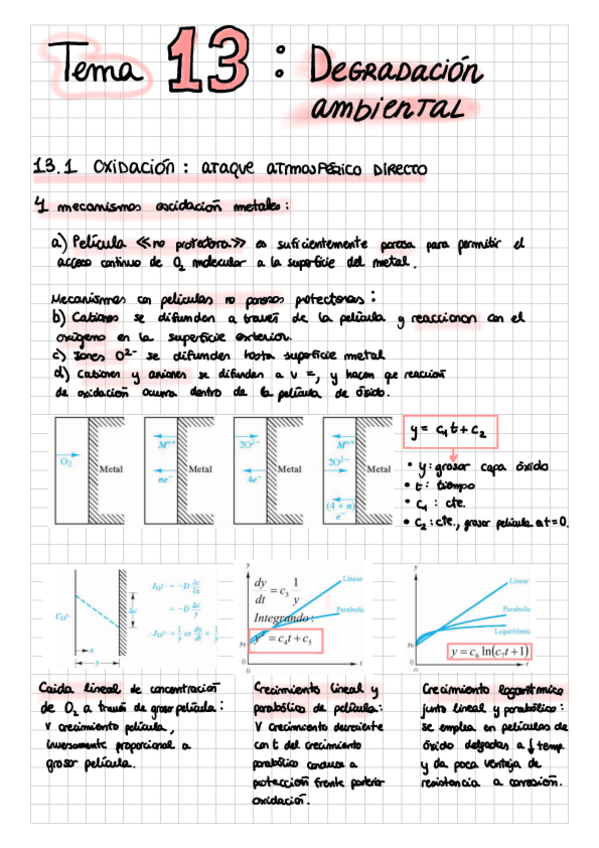 Tema 13 : DEGRADACIÓN
AMBIENTAL
13.1 OXIDACIÓN : ATAQUE ATMOSFÉRICO DIRECTO
4 mecanismos oxidación metales :
a) Película <<no protectora>> es suficientemente porosa para permitir el
acceso continuo de O2 molecular a la superficie del metal.
Mecanismos con películas no porosas protectoras :
b) Cationes se difunden a través de la película y reaccionan con el
oxígeno en la superficie exterior.
c) Iones O²⁻ se difunden hasta superficie metal
d) Cationes y aniones se difunden a v =, y hacen qe reacción
de oxidación ocurra dentro de la película de óxido.
O2 Metal
Mⁿ⁺ ne⁻ Metal
2O²⁻ 4e⁻ Metal
Mⁿ⁺ 2O²⁻ (4 + n) e⁻ Metal
y = c₁t + c₂
• y : grosor capa óxido
• t : tiempo
• c₁ : cte.
• c₂ : cte., grosor película a t = 0.
Co²⁻ Δc x y
Jo²⁻ = -D ∂c/∂x
= -D Δc/y
∴ Jo²⁻ ∝ 1/y or dy/dt ∝ 1/y
y dy/dt = c₃ 1/y Linear
Integrando: Parabolic
y² = c₄t + c₅
y₀ 0 0 t
y Linear
Parabolic
Logarithmic
y = c₆ ln(c₇t + 1)
y₀ 0 0 t
Caída lineal de concentración
de O2 a través de grosor película :
v crecimiento película,
inversamente proporcional a
grosor película.
Crecimiento lineal y
parabólico de película :
V crecimiento decreciente
con t del crecimiento
parabólico conduce a
protección frente posterior
oxidación.
Crecimiento logarítmico
junto lineal y parabólico :
se emplea en películas de
óxido delgadas a ↓ temp.
y da poca ventaja de
resistencia a corrosión.